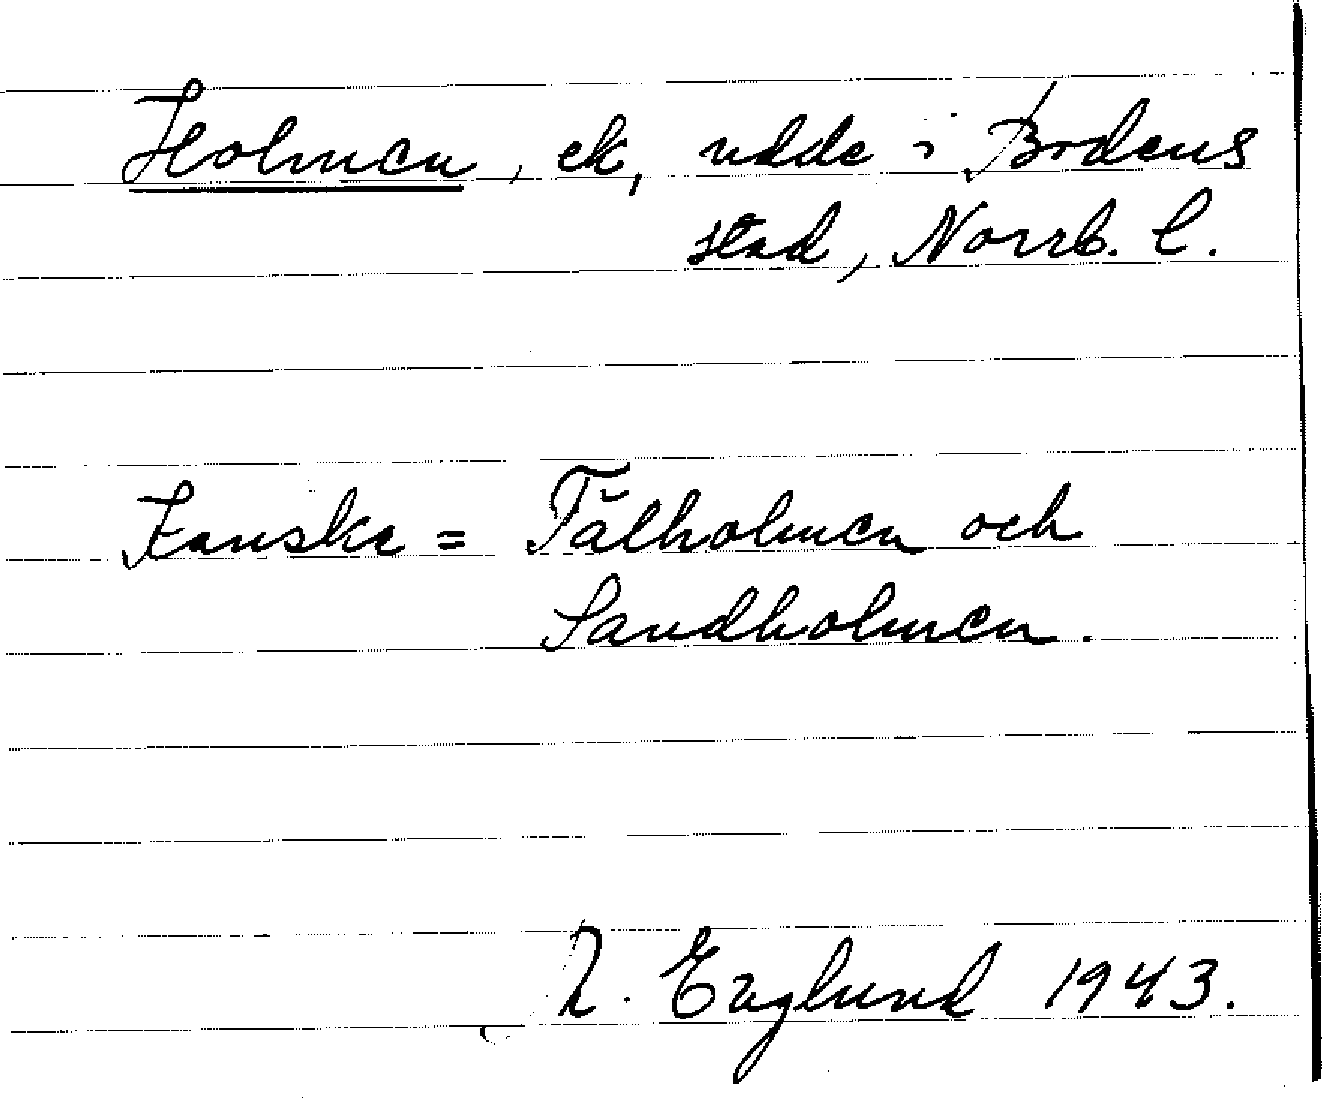 Holmen, ek, udde i Bodens
stad, Norrb. l.
Kanske = Tålholmen och
Sandholmen.
Englund 1943.